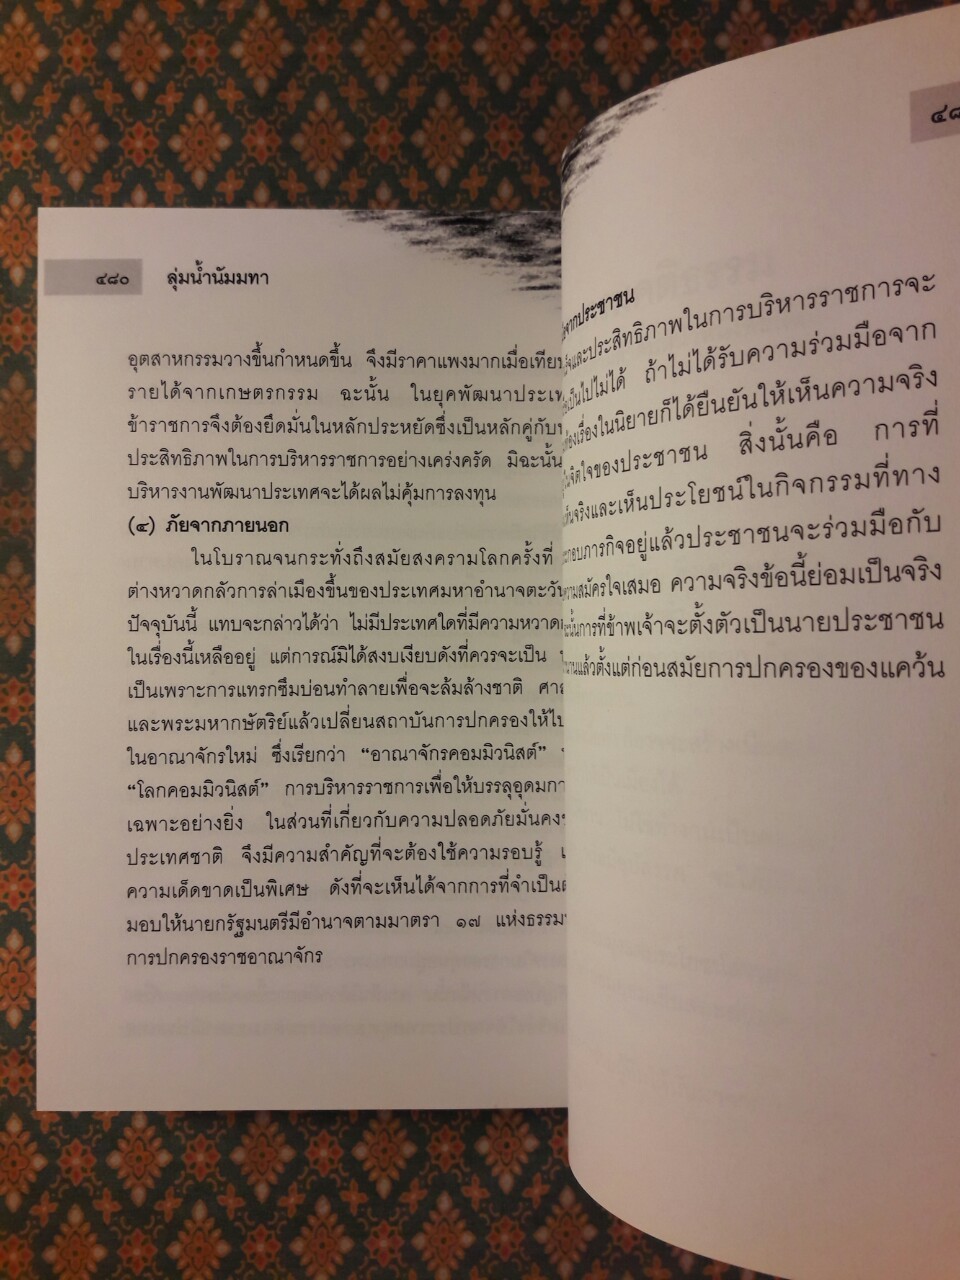 ๔๘๐ ลุ่มน้ำนัมมทา
อุตสาหกรรมวางขึ้นกำหนดขึ้น จึงมีราคาแพงมากเมื่อเทียบ
รายได้จากเกษตรกรรม ฉะนั้น ในยุคพัฒนาประเท
ข้าราชการจึงต้องยึดมั่นในหลักประหยัดซึ่งเป็นหลักคู่กับ
ประสิทธิภาพในการบริหารราชการอย่างเคร่งครัด มิฉะนั้น
บริหารงานพัฒนาประเทศจะได้ผลไม่คุ้มการลงทุน
(๔) ภัยจากภายนอก
ในโบราณจนกระทั่งถึงสมัยสงครามโลกครั้งที่
ต่างหวาดกลัวการล่าเมืองขึ้นของประเทศมหาอำนาจตะวัน
ปัจจุบันนี้ แทบจะกล่าวได้ว่า ไม่มีประเทศใดที่มีความหวาด
ในเรื่องนี้เหลืออยู่ แต่การณ์มิได้สงบเงียบดังที่ควรจะเป็น
เป็นเพราะการแทรกซึมบ่อนทำลายเพื่อจะล้มล้างชาติ
และพระมหากษัตริย์แล้วเปลี่ยนสถาบันการปกครองให้ไป
ในอาณาจักรใหม่ ซึ่งเรียกว่า “อาณาจักรคอมมิวนิสต์”
“โลกคอมมิวนิสต์” การบริหารราชการเพื่อให้บรรลุอุดมกา
เฉพาะอย่างยิ่ง ในส่วนที่เกี่ยวกับความปลอดภัยมั่นคง
ประเทศชาติ จึงมีความสำคัญที่จะต้องใช้ความรอบรู้
ความเด็ดขาดเป็นพิเศษ ดังที่จะเห็นได้จากการที่จำเป็น
มอบให้นายกรัฐมนตรีมีอำนาจตามมาตรา ๑๗ แห่งธรรม
การปกครองราชอาณาจักร
จากประชาชน
และประสิทธิภาพในการบริหารราชการจะ
เป็นไปไม่ได้ ถ้าไม่ได้รับความร่วมมือจาก
เรื่องในนิยายก็ได้ยืนยันให้เห็นความจริง
ในจิตใจของประชาชน สิ่งนั้นคือ การที่
เห็นจริงและเห็นประโยชน์ในกิจกรรมที่ทาง
กอบภารกิจอยู่แล้วประชาชนจะร่วมมือกับ
ความสมัครใจเสมอ ความจริงข้อนี้ย่อมเป็นจริง
ฉะนั้นการที่ข้าพเจ้าจะตั้งตัวเป็นนายประชาชน
นานแล้วตั้งแต่ก่อนสมัยการปกครองของแคว้น